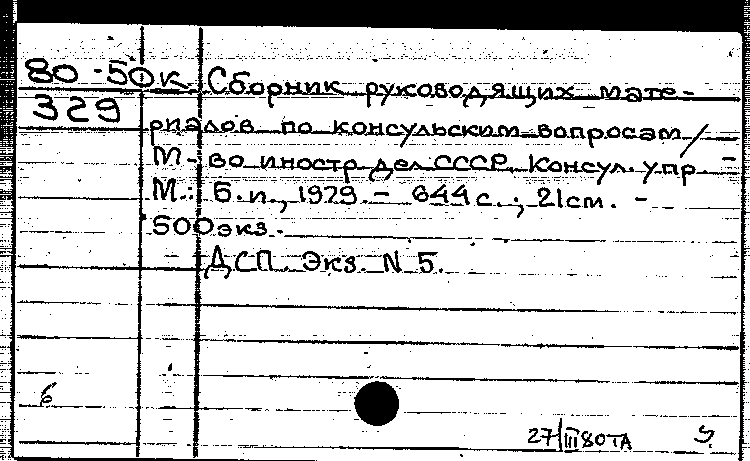 80-50к Сборник руководящих мате-
329
риалов по консульским вопросам /
М-во иностр дел СССР. Консул. упр. -
М.: Б.и., 1979. - 644 с.; 21 см. -
500 экз.
ДСП. Экз. N 5.
б
27/III 80 ТА